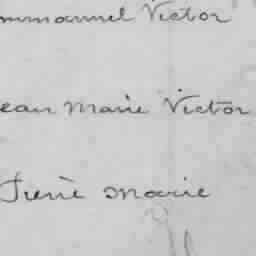 mmanuel Victor
ean Marie Victor
Irène Marie